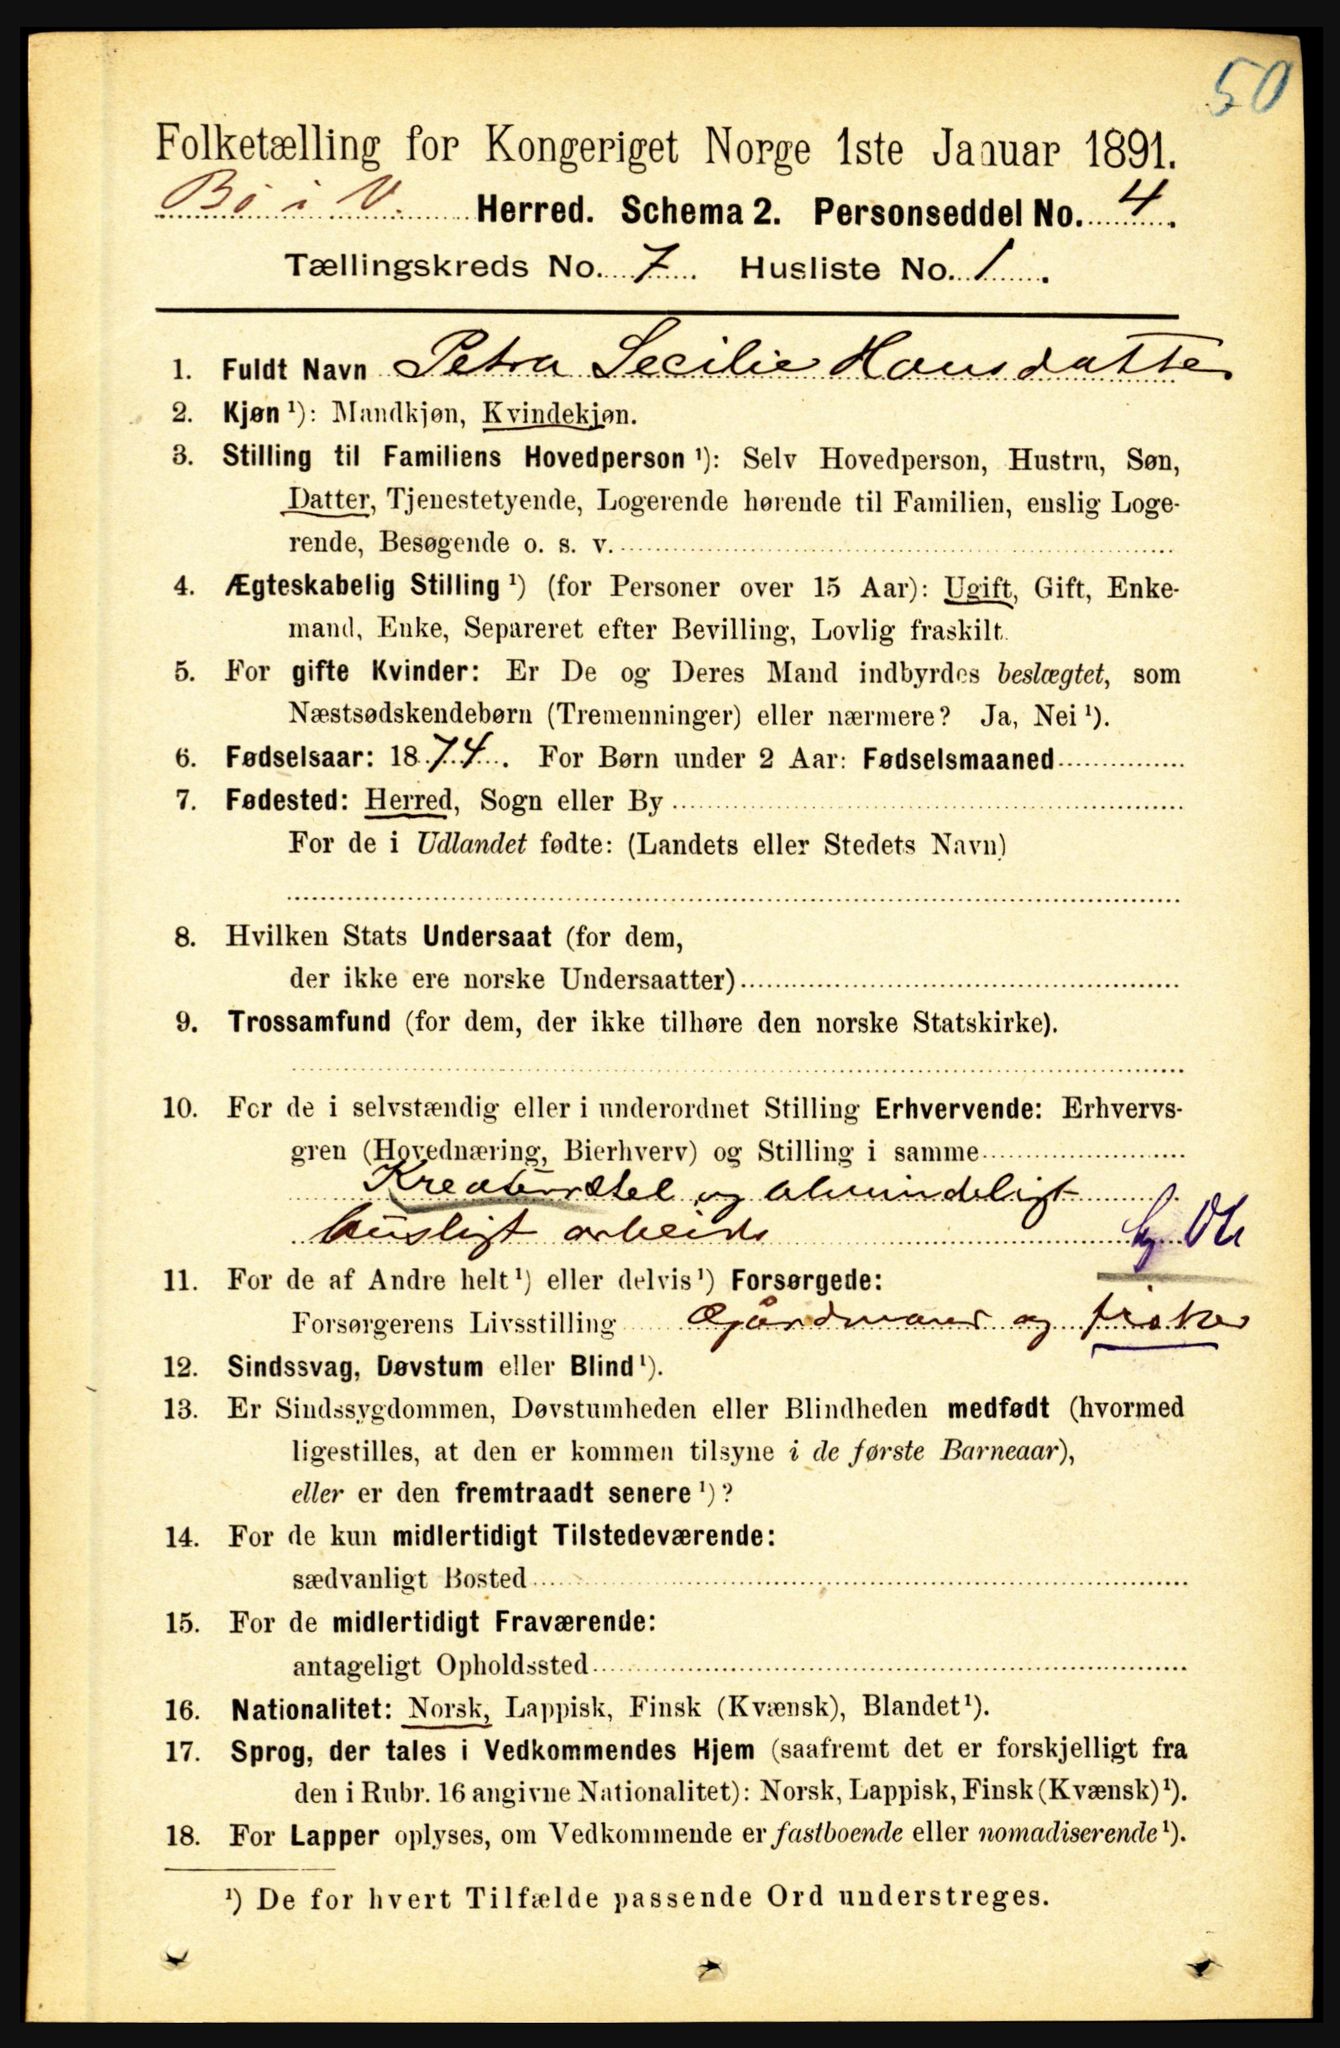 50
Folketælling for Kongeriget Norge 1ste Januar 1891.
Bö i V. Herred. Schema 2. Personseddel No. 4.
Tællingskreds No. 7. Husliste No. 1.
1. Fuldt Navn Petra Secilie Hansdatter
2. Kjøn ¹): Mandkjøn, Kvindekjøn.
3. Stilling til Familiens Hovedperson ¹): Selv Hovedperson, Hustru, Søn,
Datter, Tjenestetyende, Logerende hørende til Familien, enslig Loge-
rende, Besøgende o. s. v.
4. Ægteskabelig Stilling ¹) (for Personer over 15 Aar): Ugift, Gift, Enke-
mand, Enke, Separeret efter Bevilling, Lovlig fraskilt.
5. For gifte Kvinder: Er De og Deres Mand indbyrdes beslægtet, som
Næstsødskendebørn (Tremenninger) eller nærmere? Ja, Nei ¹).
6. Fødselsaar: 1874. For Børn under 2 Aar: Fødselsmaaned
7. Fødested: Herred, Sogn eller By
For de i Udlandet fødte: (Landets eller Stedets Navn)
8. Hvilken Stats Undersaat (for dem,
der ikke ere norske Undersaatter)
9. Trossamfund (for dem, der ikke tilhøre den norske Statskirke).
10. For de i selvstændig eller i underordnet Stilling Erhvervende: Erhvervs-
gren (Hovednæring, Bierhverv) og Stilling i samme
Kreaturstel og almindeligt
husligt arbeide
11. For de af Andre helt ¹) eller delvis ¹) Forsørgede:
Forsørgerens Livsstilling Gårdmand og fisker
12. Sindssvag, Døvstum eller Blind ¹).
13. Er Sindssygdommen, Døvstumheden eller Blindheden medfødt (hvormed
ligestilles, at den er kommen tilsyne i de første Barneaar),
eller er den fremtraadt senere ¹)?
14. For de kun midlertidigt Tilstedeværende:
sædvanligt Bosted
15. For de midlertidigt Fraværende:
antageligt Opholdssted
16. Nationalitet: Norsk, Lappisk, Finsk (Kvænsk), Blandet ¹).
17. Sprog, der tales i Vedkommendes Hjem (saafremt det er forskjelligt fra
den i Rubr. 16 angivne Nationalitet): Norsk, Lappisk, Finsk (Kvænsk) ¹).
18. For Lapper oplyses, om Vedkommende er fastboende eller nomadiserende ¹).
¹) De for hvert Tilfælde passende Ord understreges.